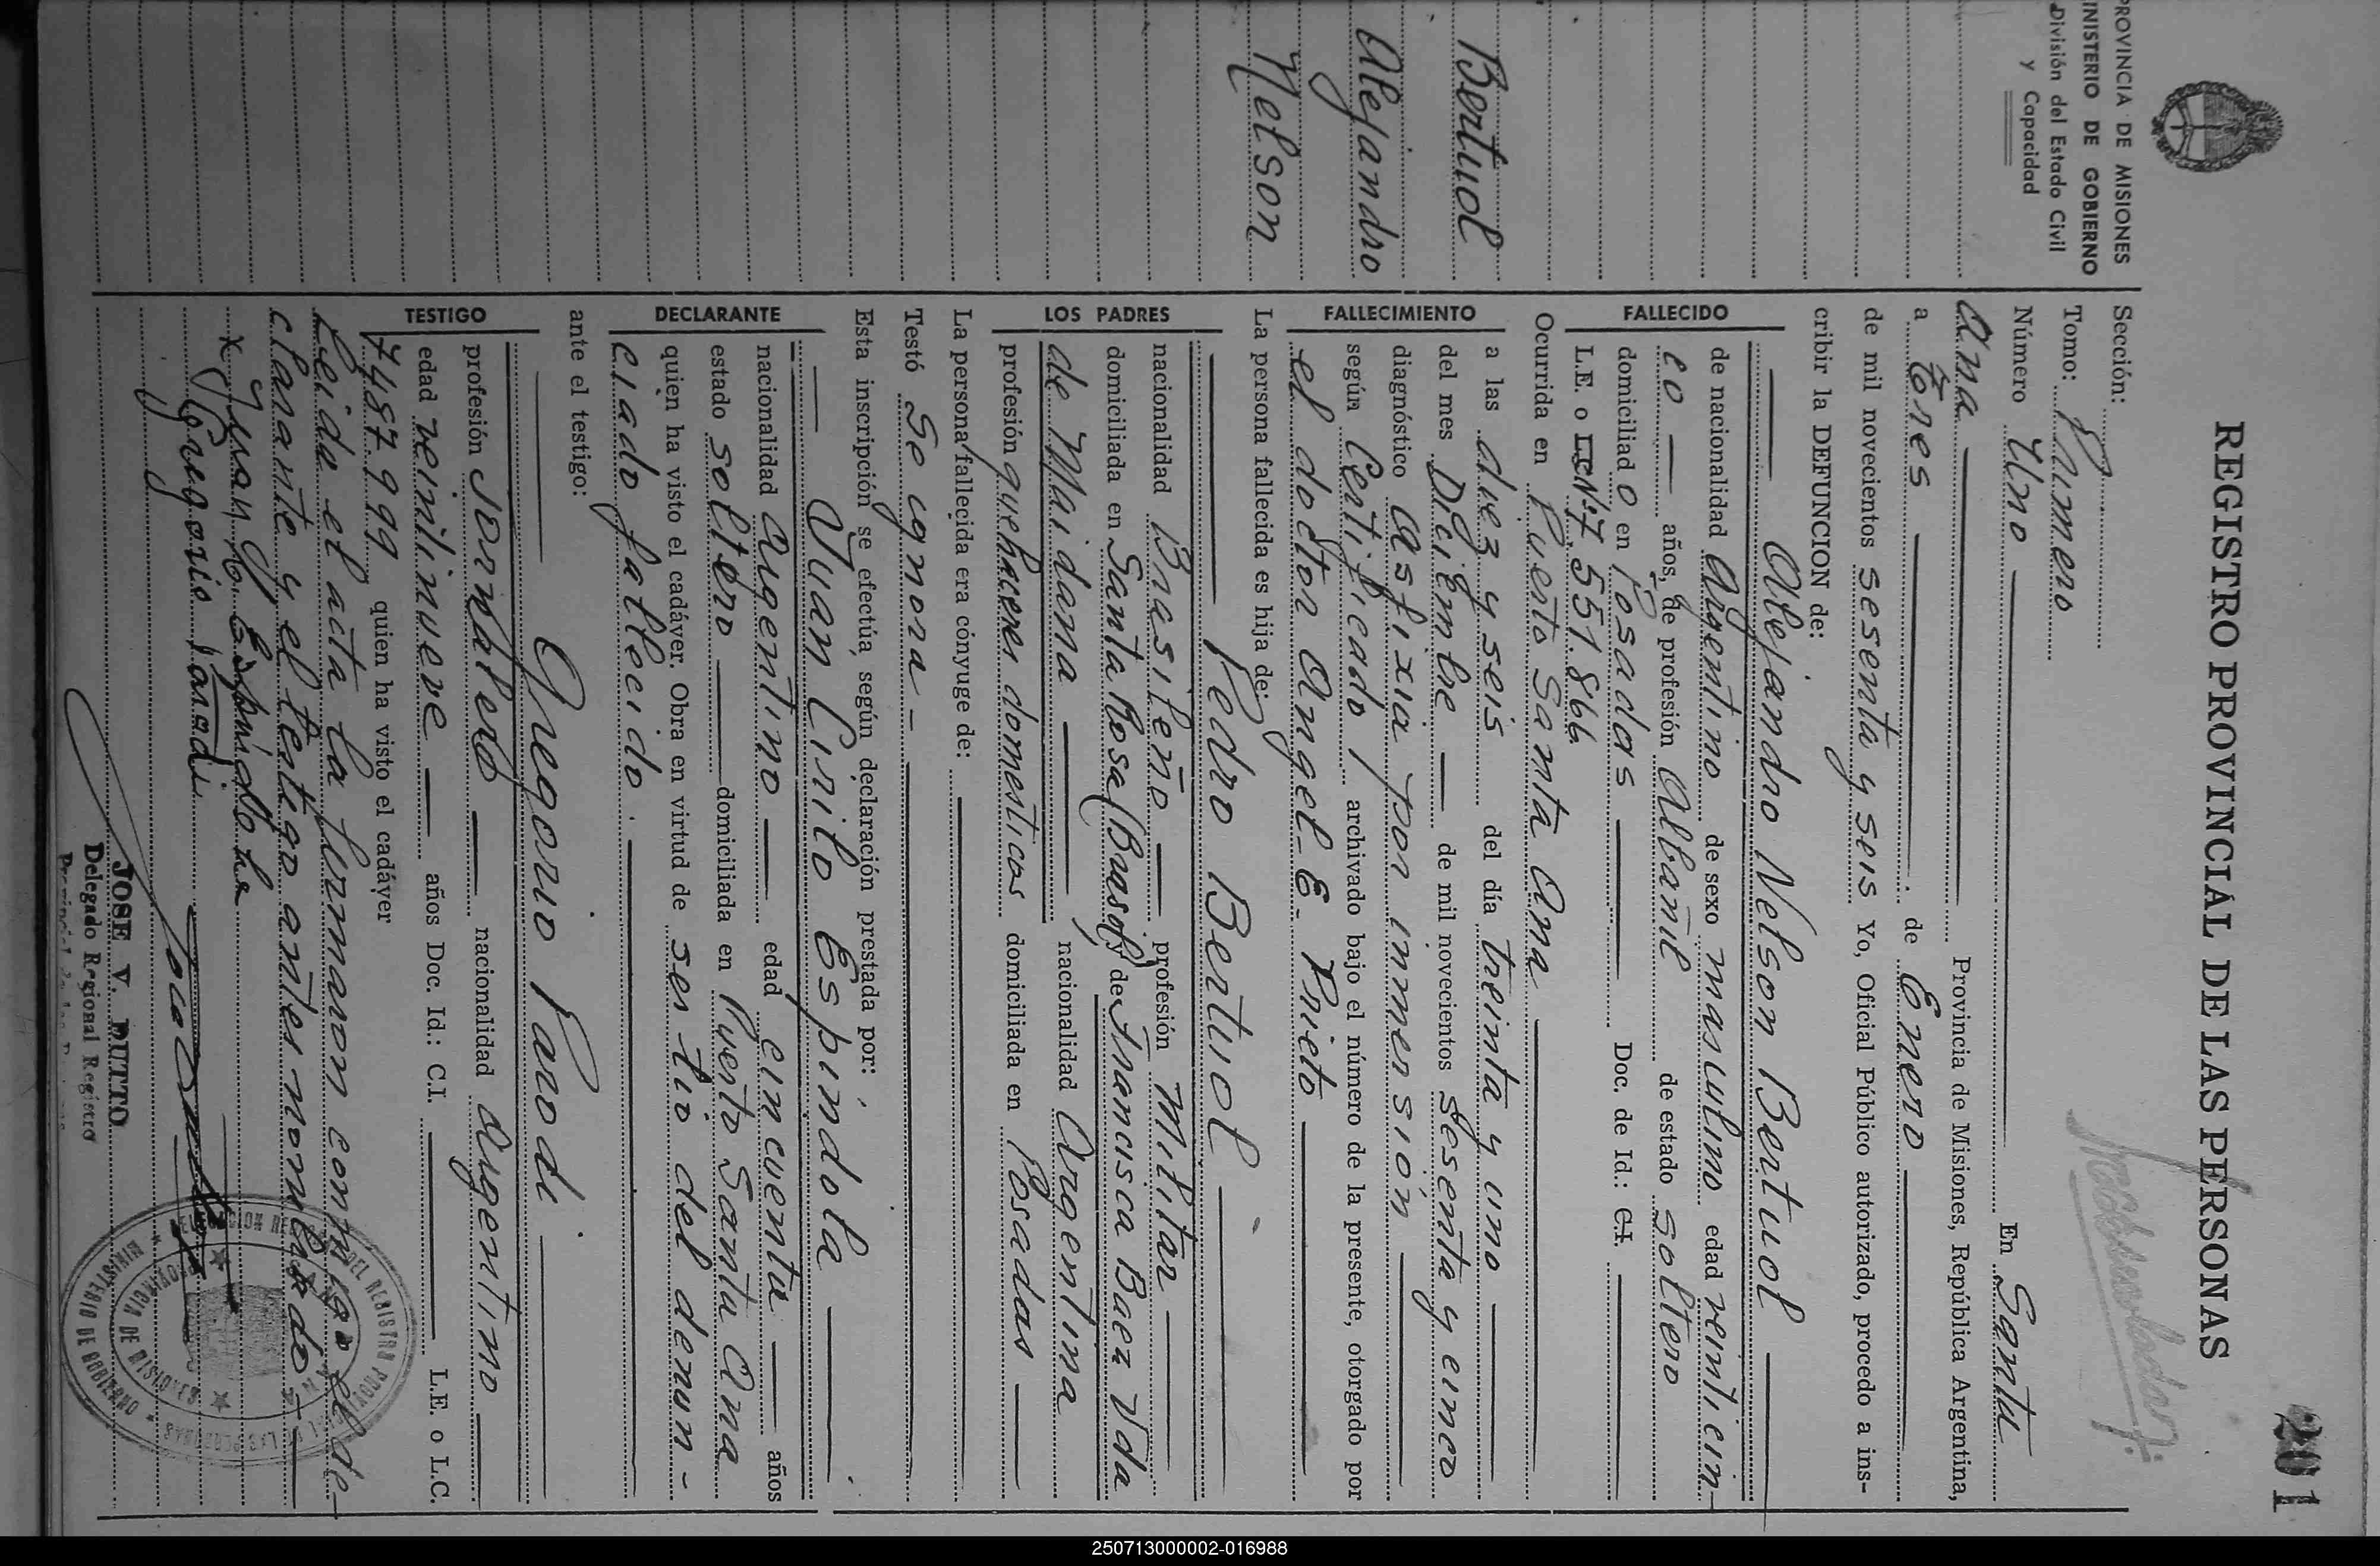 201
REGISTRO PROVINCIAL DE LAS PERSONAS
PROVINCIA DE MISIONES
MINISTERIO DE GOBIERNO
División del Estado Civil
y Capacidad
Bertuol
Alejandro
Nelson
Sección:
Tomo: Primero
Número Uno En Santa
Ana Provincia de Misiones, República Argentina,
a Tres de Enero
de mil novecientos sesenta y seis Yo, Oficial Público autorizado, procedo a ins-
cribir la DEFUNCION de:
FALLECIDO
Alejandro Nelson Bertuol
de nacionalidad Argentino de sexo masculino edad veinticin-
co años, de profesión Albañil de estado soltero
domiciliado en Posadas Doc. de Id.: C.I.
L.E. o L.C. Nº 7.551.866
Ocurrida en Puerto Santa Ana
FALLECIMIENTO
a las diez y seis del día treinta y uno
del mes Diciembre de mil novecientos sesenta y cinco
diagnóstico Asfixia por inmersión
según Certificado 1 archivado bajo el número de la presente, otorgado por
el doctor Angel E. Prieto
La persona fallecida es hija de:
LOS PADRES
Pedro Bertuol
nacionalidad Brasileño profesión Militar
domiciliada en Santa Rosa (Brasil) y de Francisca Baez Vda
de Maidana nacionalidad Argentina
profesión quehaceres domesticos domiciliada en Posadas
La persona fallecida era cónyuge de:
Testó Se ignora -
Esta inscripción se efectúa según declaración prestada por:
DECLARANTE
Juan Cirilo Espindola
nacionalidad Argentino edad cincuenta años
estado soltero domiciliada en Puerto Santa Ana
quien ha visto el cadáver. Obra en virtud de ser tio del denun-
ciado fallecido.
ante el testigo:
TESTIGO
Gregorio Parodi
profesión Jornalero nacionalidad Argentino
edad veintinueve años Doc. Id.: C.I. L.E. o L.C.
7487.999 quien ha visto el cadáver
Leida el acta la firmaron conmigo el de-
clarante y el testigo antes nombrado -
x Juan Espíndola
Gregorio Parodi
JOSE V. DUTTO
Delegado Regional Registro
250713000002-016988